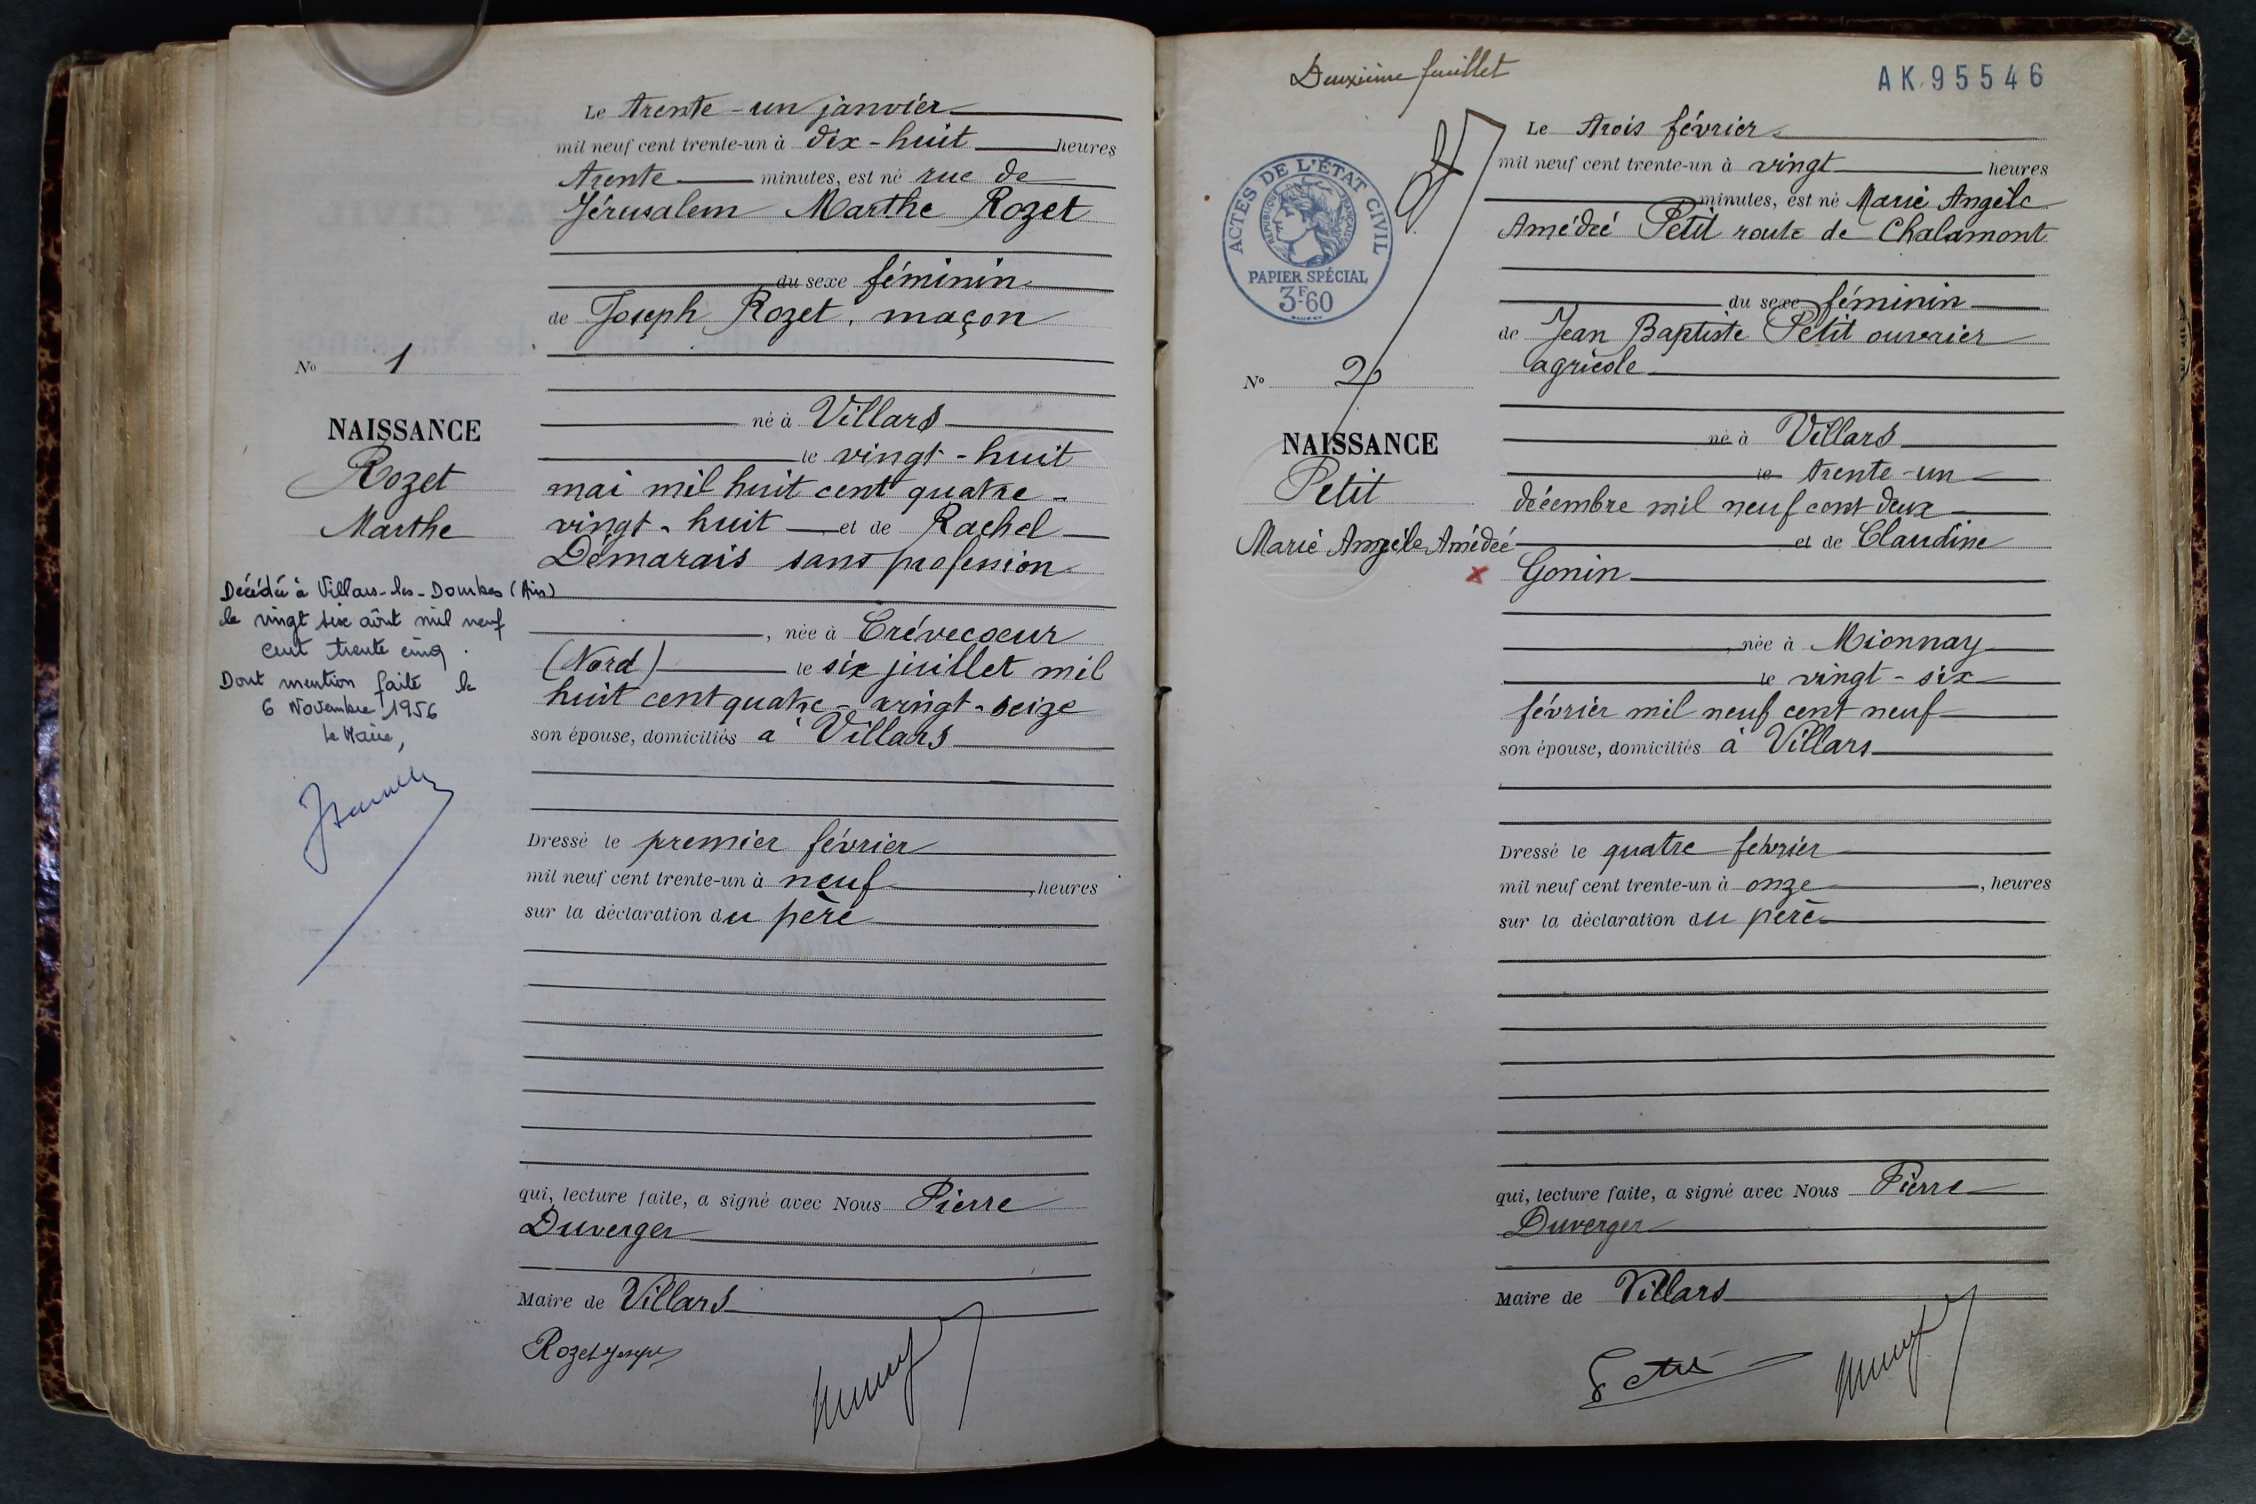 Le trente-un janvier
mil neuf cent trente-un à dix-huit heures
trente minutes, est né rue de
Jérusalem Marthe Rozet
du sexe féminin
de Joseph Rozet, maçon
No 1
né à Villars
NAISSANCE
le vingt-huit
Rozet
mai mil huit cent quatre-
Marthe
vingt-huit et de Rachel
Démarais sans profession
Décédée à Villars-les-Dombes (Ain)
le vingt six août mil neuf
cent trente cinq.
Dont mention faite le
6 Novembre 1956
Le Maire,
, née à Crévecoeur
(Nord) le six juillet mil
huit cent quatre-vingt-seize
son épouse, domiciliés à Villars
Dressé le premier février
mil neuf cent trente-un à neuf, heures
sur la déclaration du père
qui, lecture faite, a signé avec Nous Pierre
Duverger
Maire de Villars
Rozet Joseph
Deuxième feuillet
AK.95546
ACTES DE L'ÉTAT CIVIL
RÉPUBLIQUE FRANÇAISE
PAPIER SPÉCIAL
3F60
Le trois février
mil neuf cent trente-un à vingt heures
minutes, est né Marie Angèle
Amédée Petit route de Chalamont
du sexe féminin
de Jean Baptiste Petit ouvrier
agricole
No 2
NAISSANCE
Petit
Marie Angèle Amédée
né à Villars
le trente-un
décembre mil neuf cent deux
et de Claudine
x Gonin
, née à Mionnay
le vingt-six
février mil neuf cent neuf
son épouse, domiciliés à Villars
Dressé le quatre février
mil neuf cent trente-un à onze, heures
sur la déclaration du père
qui, lecture faite, a signé avec Nous Pierre
Duverger
Maire de Villars
Petit